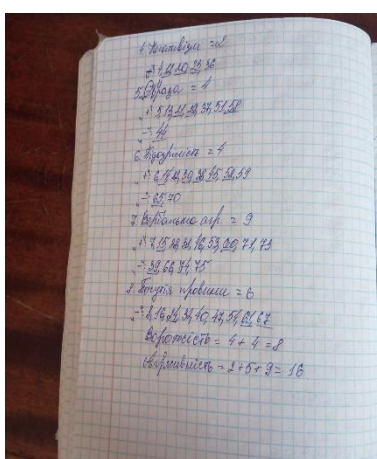 4. Негативізм = 2
"+": 4, 12, 20, 23, 36
5. Образа = 4
"+": 5, 13, 21, 29, 37, 51, 58
"-": 44
6. Підозрілість = 4
"+": 6, 14, 22, 30, 38, 45, 52, 59
"-": 65, 70
7. Вербальна агр. = 9
"+": 7, 15, 46, 53, 60, 71, 73
"-": 39, 66, 74, 75
8. Почуття провини = 6
"+": 8, 16, 24, 32, 40, 47, 54, 61, 67
Ворожість = 4 + 4 = 8
Агресивність = 2 + 5 + 9 = 16